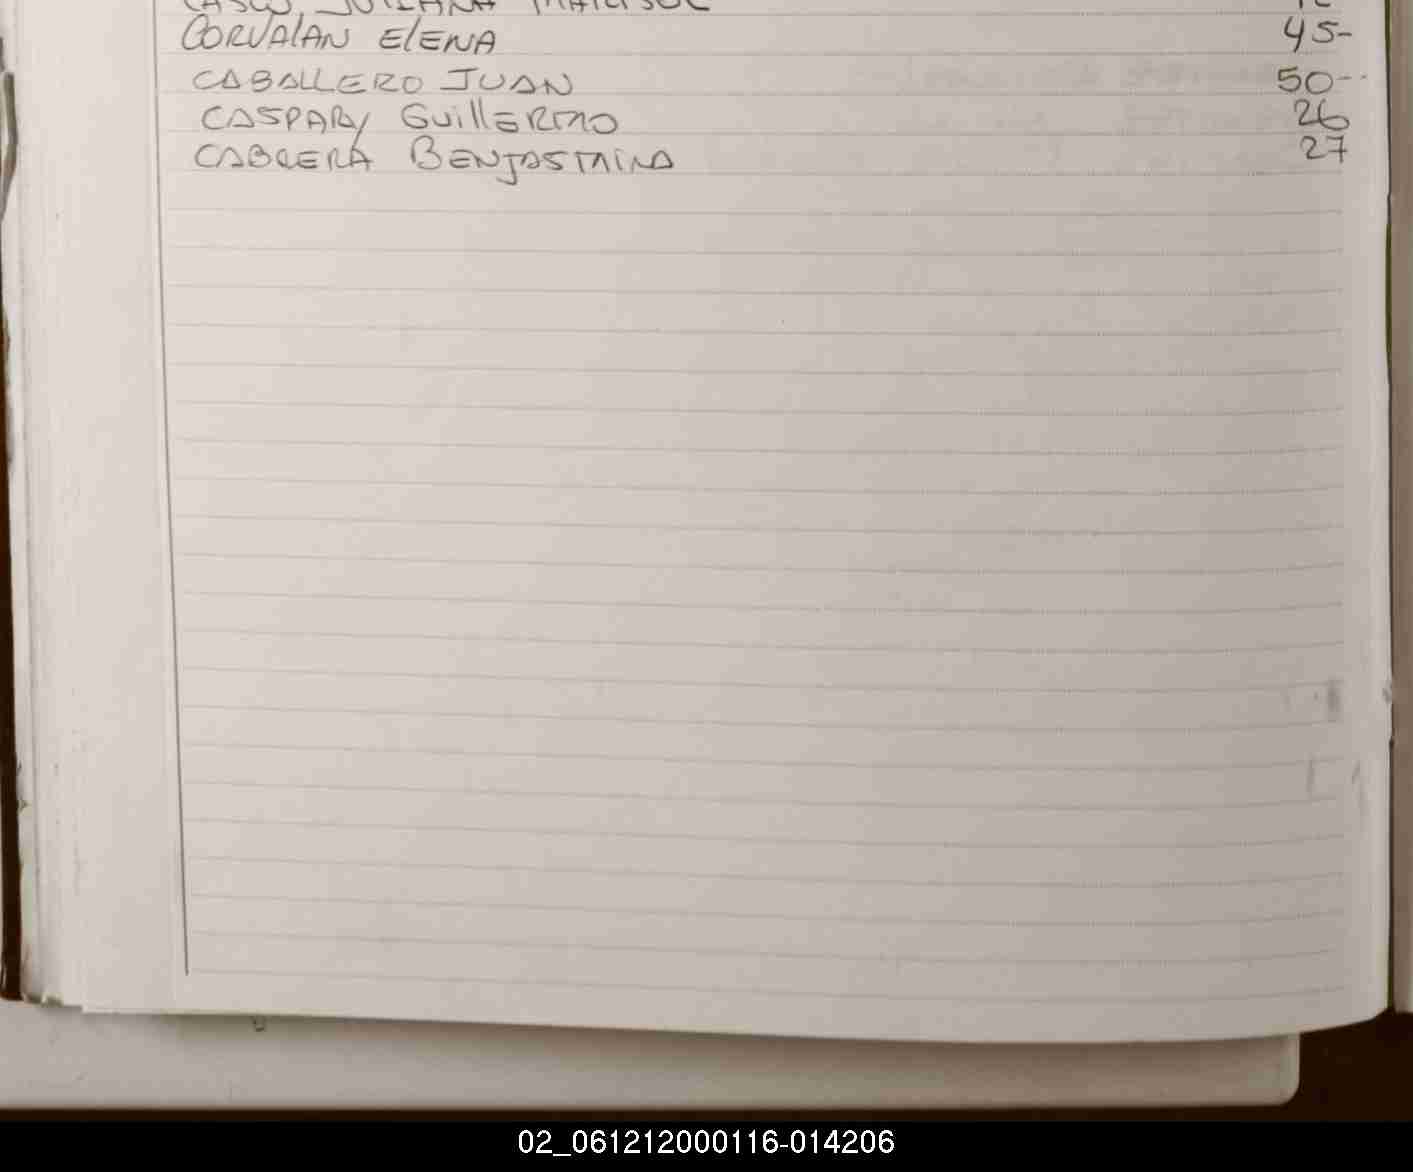 CORVALAN ELENA 45-
CABALLERO JUAN 50--
CASPARY GUILLERMO 26
CABRERA 27
02_061212000116-014206